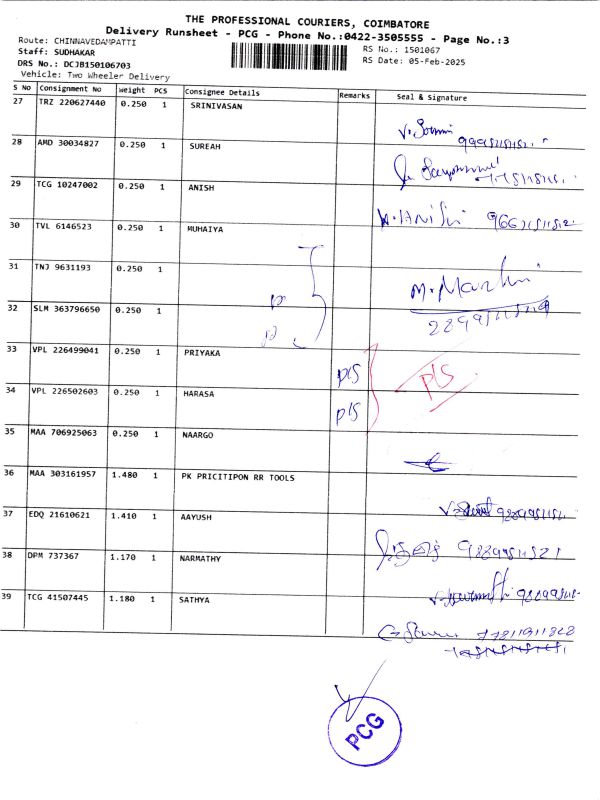 THE PROFESSIONAL COURIERS, COIMBATORE
Delivery Runsheet - PCG - Phone No.:0422-3505555 - Page No.:3
Route: CHINNAVEDAMPATTI
RS No : 1501067
Staff: SUDHAKAR
RS Date: 05-Feb-2025
DRS No.: DCJB150106703
Vehicle: Two Wheeler Delivery
S No Consignment No Weight PCS Consignee Details Remarks Seal & Signature
27 TRZ 220627440 0.250 1 SRINIVASAN
28 AMD 30034827 0.250 1 SUREAH
29 TCG 10247002 0.250 1 ANISH
30 TVL 6146523 0.250 1 MUHAIYA
31 TNJ 9631193 0.250 1
32 SLM 363796650 0.250 1
33 VPL 226499041 0.250 1 PRIYAKA pls
pls
34 VPL 226502603 0.250 1 HARASA pls
35 MAA 706925063 0.250 1 NAARGO
36 MAA 303161957 1.480 1 PK PRICITIPON RR TOOLS
37 EDQ 21610621 1.410 1 AAYUSH
38 DPM 737367 1.170 1 NARMATHY
39 TCG 41507445 1.180 1 SATHYA
PCG